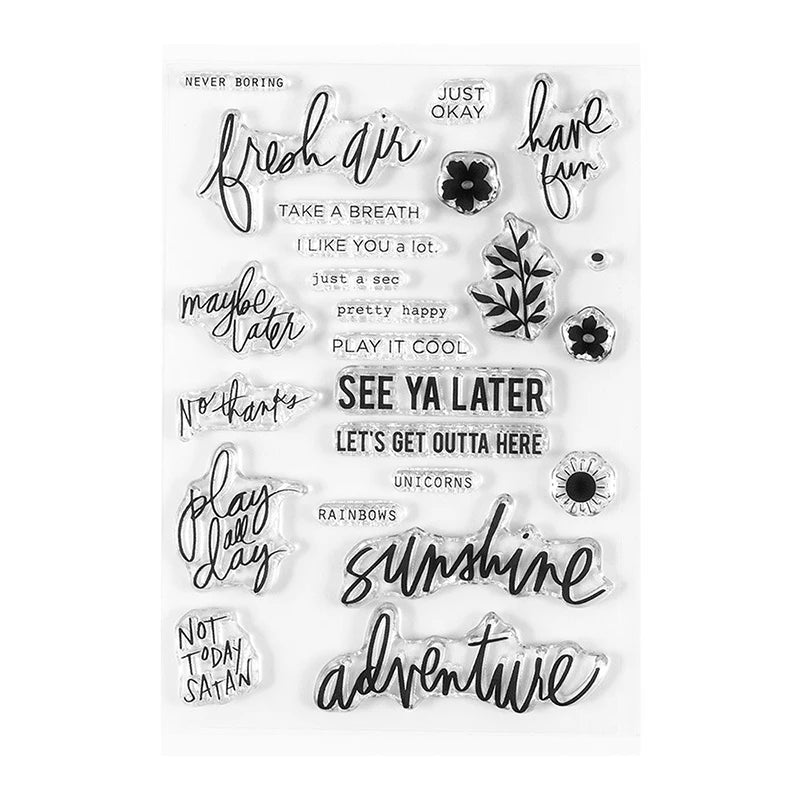 NEVER BORING
JUST
OKAY
fresh air
have
fun
TAKE A BREATH
I LIKE YOU a lot.
just a sec
maybe
later
pretty happy
PLAY IT COOL
SEE YA LATER
No thanks
LET'S GET OUTTA HERE
UNICORNS
play
all
day
RAINBOWS
sunshine
NOT
TODAY
SATAN
adventure